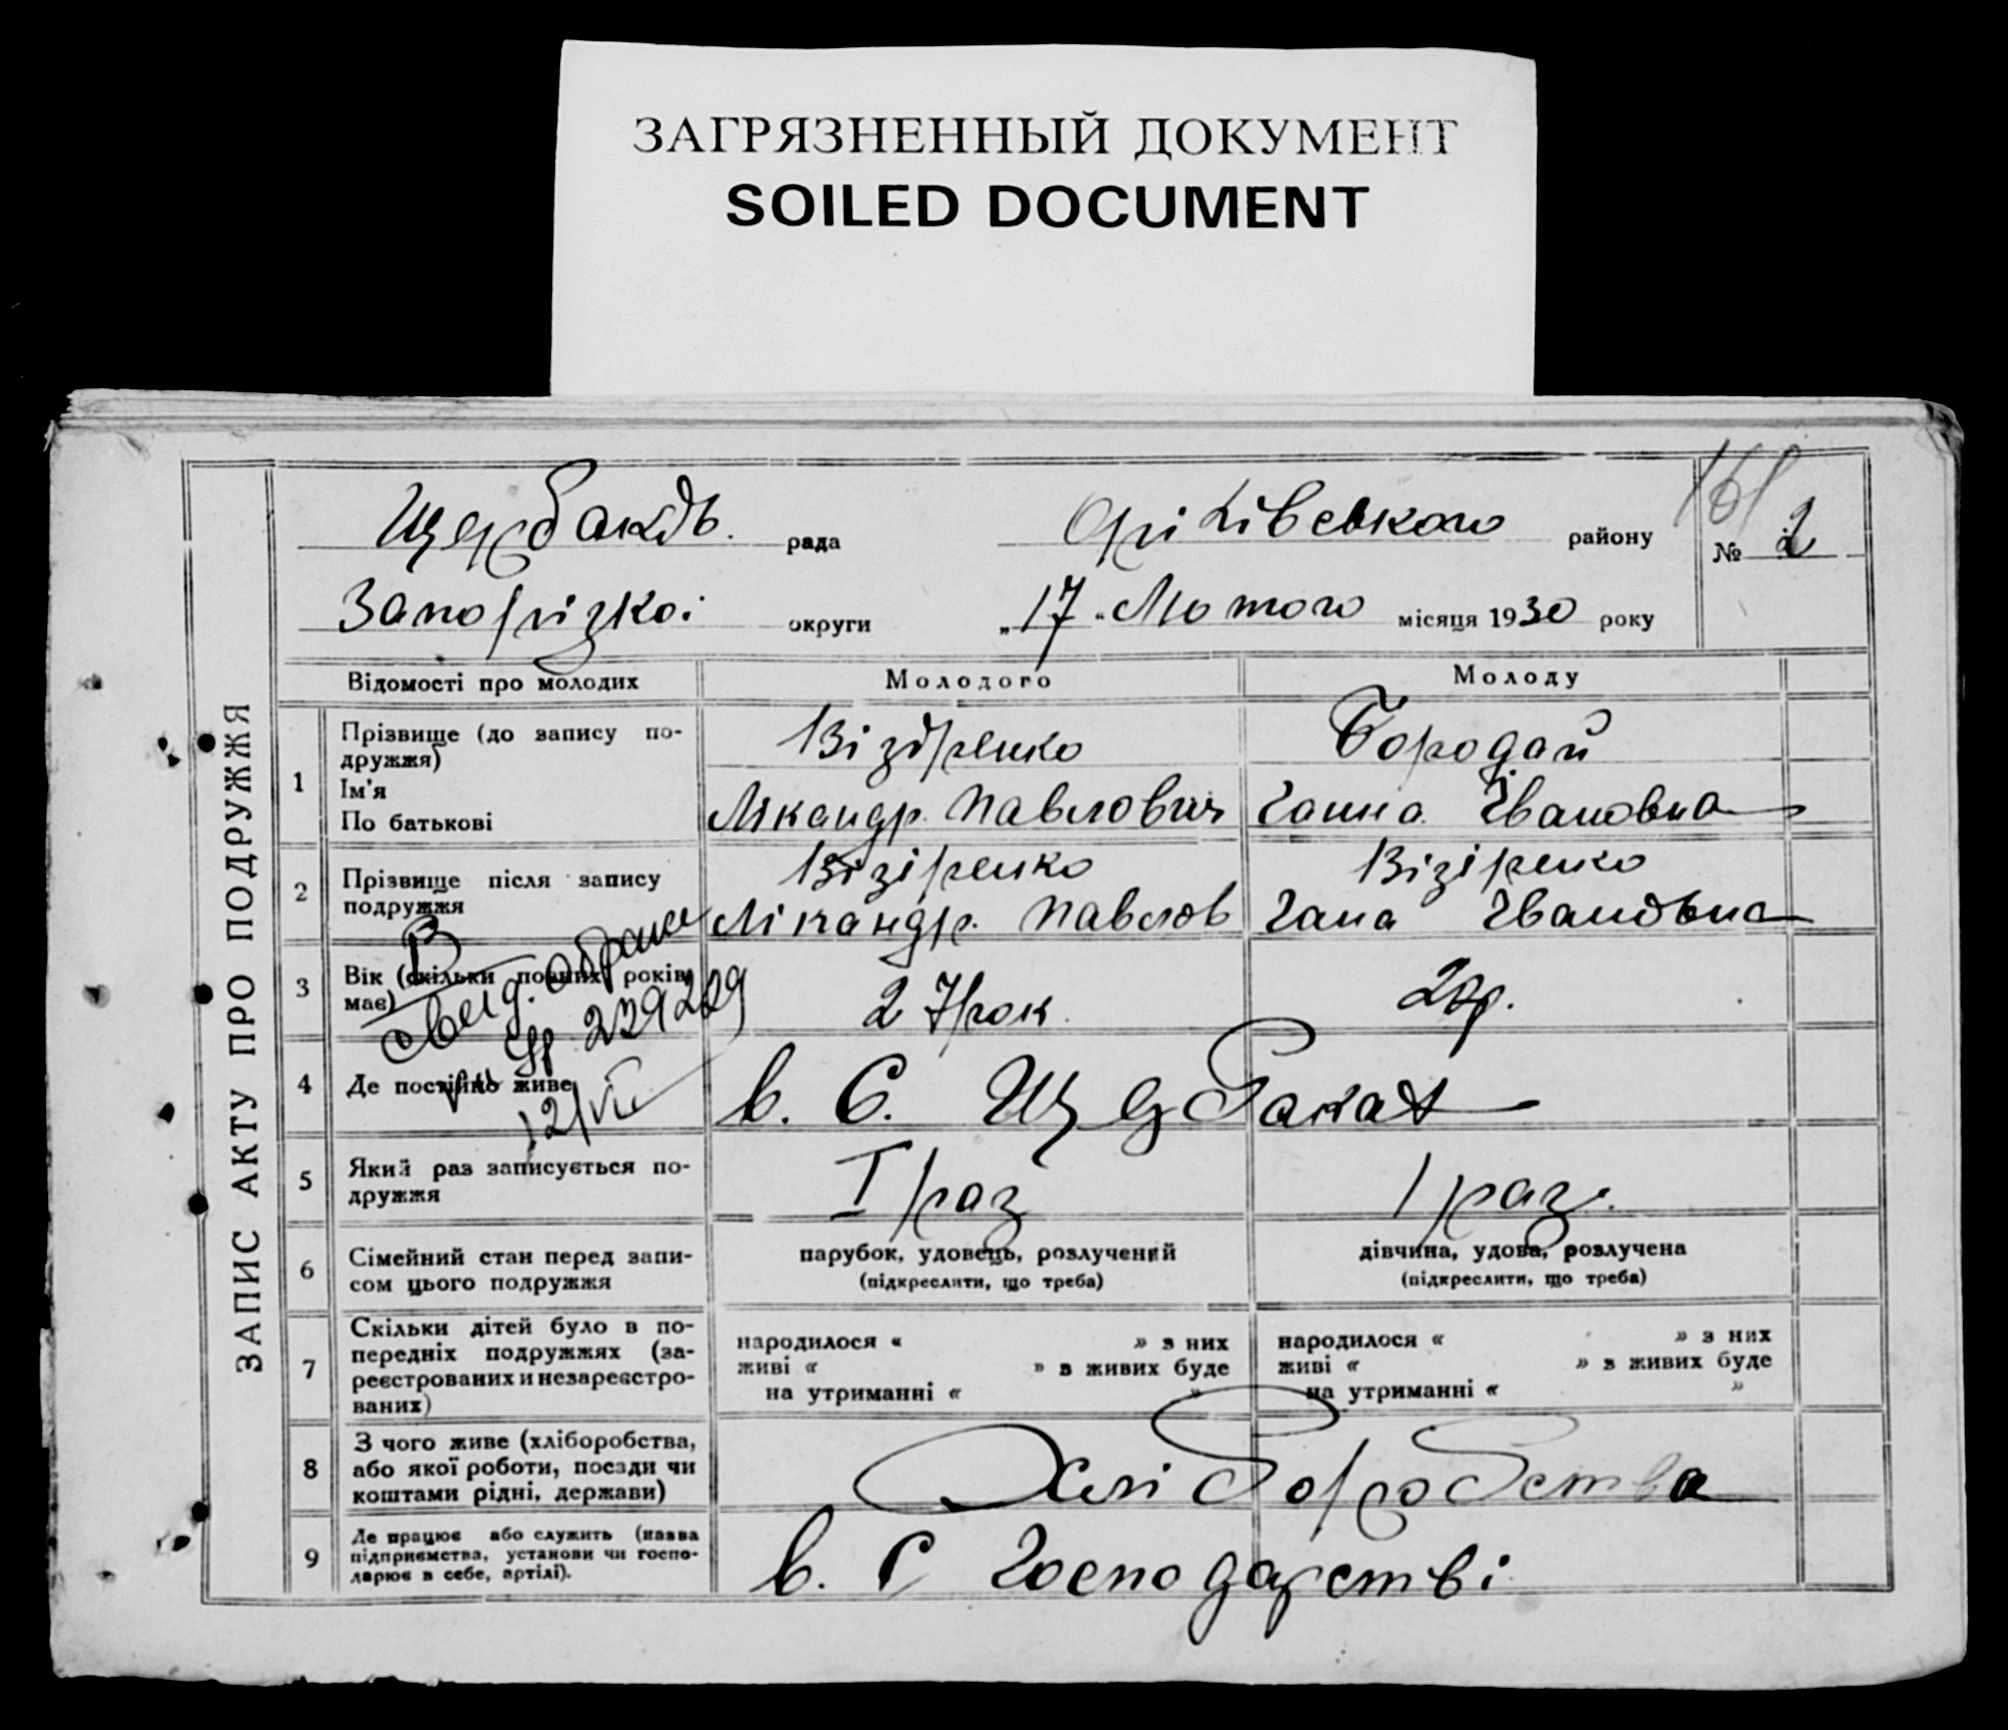 ЗАГРЯЗНЕННЫЙ ДОКУМЕНТ
SOILED DOCUMENT
ЗАПИС АКТУ ПРО ПОДРУЖЖЯ
Щербаків. рада Оріхівського району
161
№ 2
Запоріzкої округи „17" Лютого місяця 1930 року
Відомості про молодих Молодого Молоду
1 Прізвище (до запису по-
дружжя)
Ім'я
По батькові
Візіренко
Лікандр. Павлович
Бородай
Ганна Івановна
2 Прізвище після запису
подружжя
Візіренко
Лікандр. Павлов
Візіренко
Гана Івановна
3 Вік (скільки повних років
має)
27 рок.
В
свид. о браке
229229
12/VII
4 Де постійно живе
в. С. Щербаках
5 Який раз записується по-
дружжя
I раз
1 раз.
6 Сімейний стан перед запи-
сом цього подружжя
парубок, удовець, розлучений
(підкреслити, що треба)
дівчина, удова, розлучена
(підкреслити, що треба)
7 Скільки дітей було в по-
передніх подружжях (за-
реєстрованих и незареєстро-
ваних)
народилося « » з них
живі « » з живих буде
на утриманні « »
народилося « » з них
живі « » з живих буде
на утриманні « »
8 З чого живе (хліборобства,
або якої роботи, посади чи
коштами рідні, держави)
Хліборобства
9 Де працює або служить (назва
підприємства, установи чи госпо-
дарює в себе, артілі).
в. С Господарстві